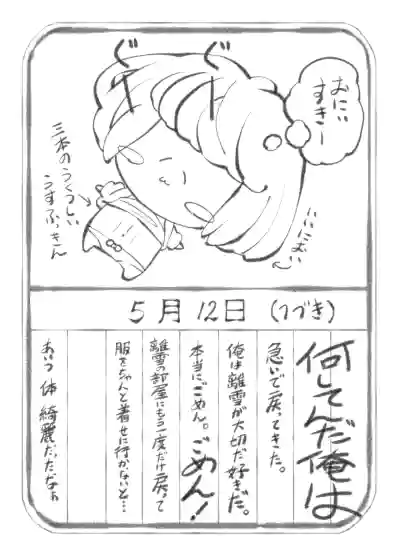 ぐー
ぐー
おにい
すきー
三本のうつくしい
うすふっきん
いいにおい
5月12日 (つづき)
何してんだ俺は
急いで戻ってきた。
俺は離雪が大切だ好きだ。
本当にごめん。ごめん!
離雪の部屋にもう一度だけ戻って
服をちゃんと着せに行かないと…
あいつ 体 綺麗だったなぁ